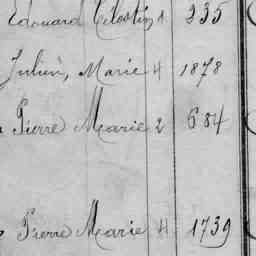 Edouard Célestin 1 235
Julien, Marie 4 1878
Pierre Marie 2 684
Pierre Marie 4 1739